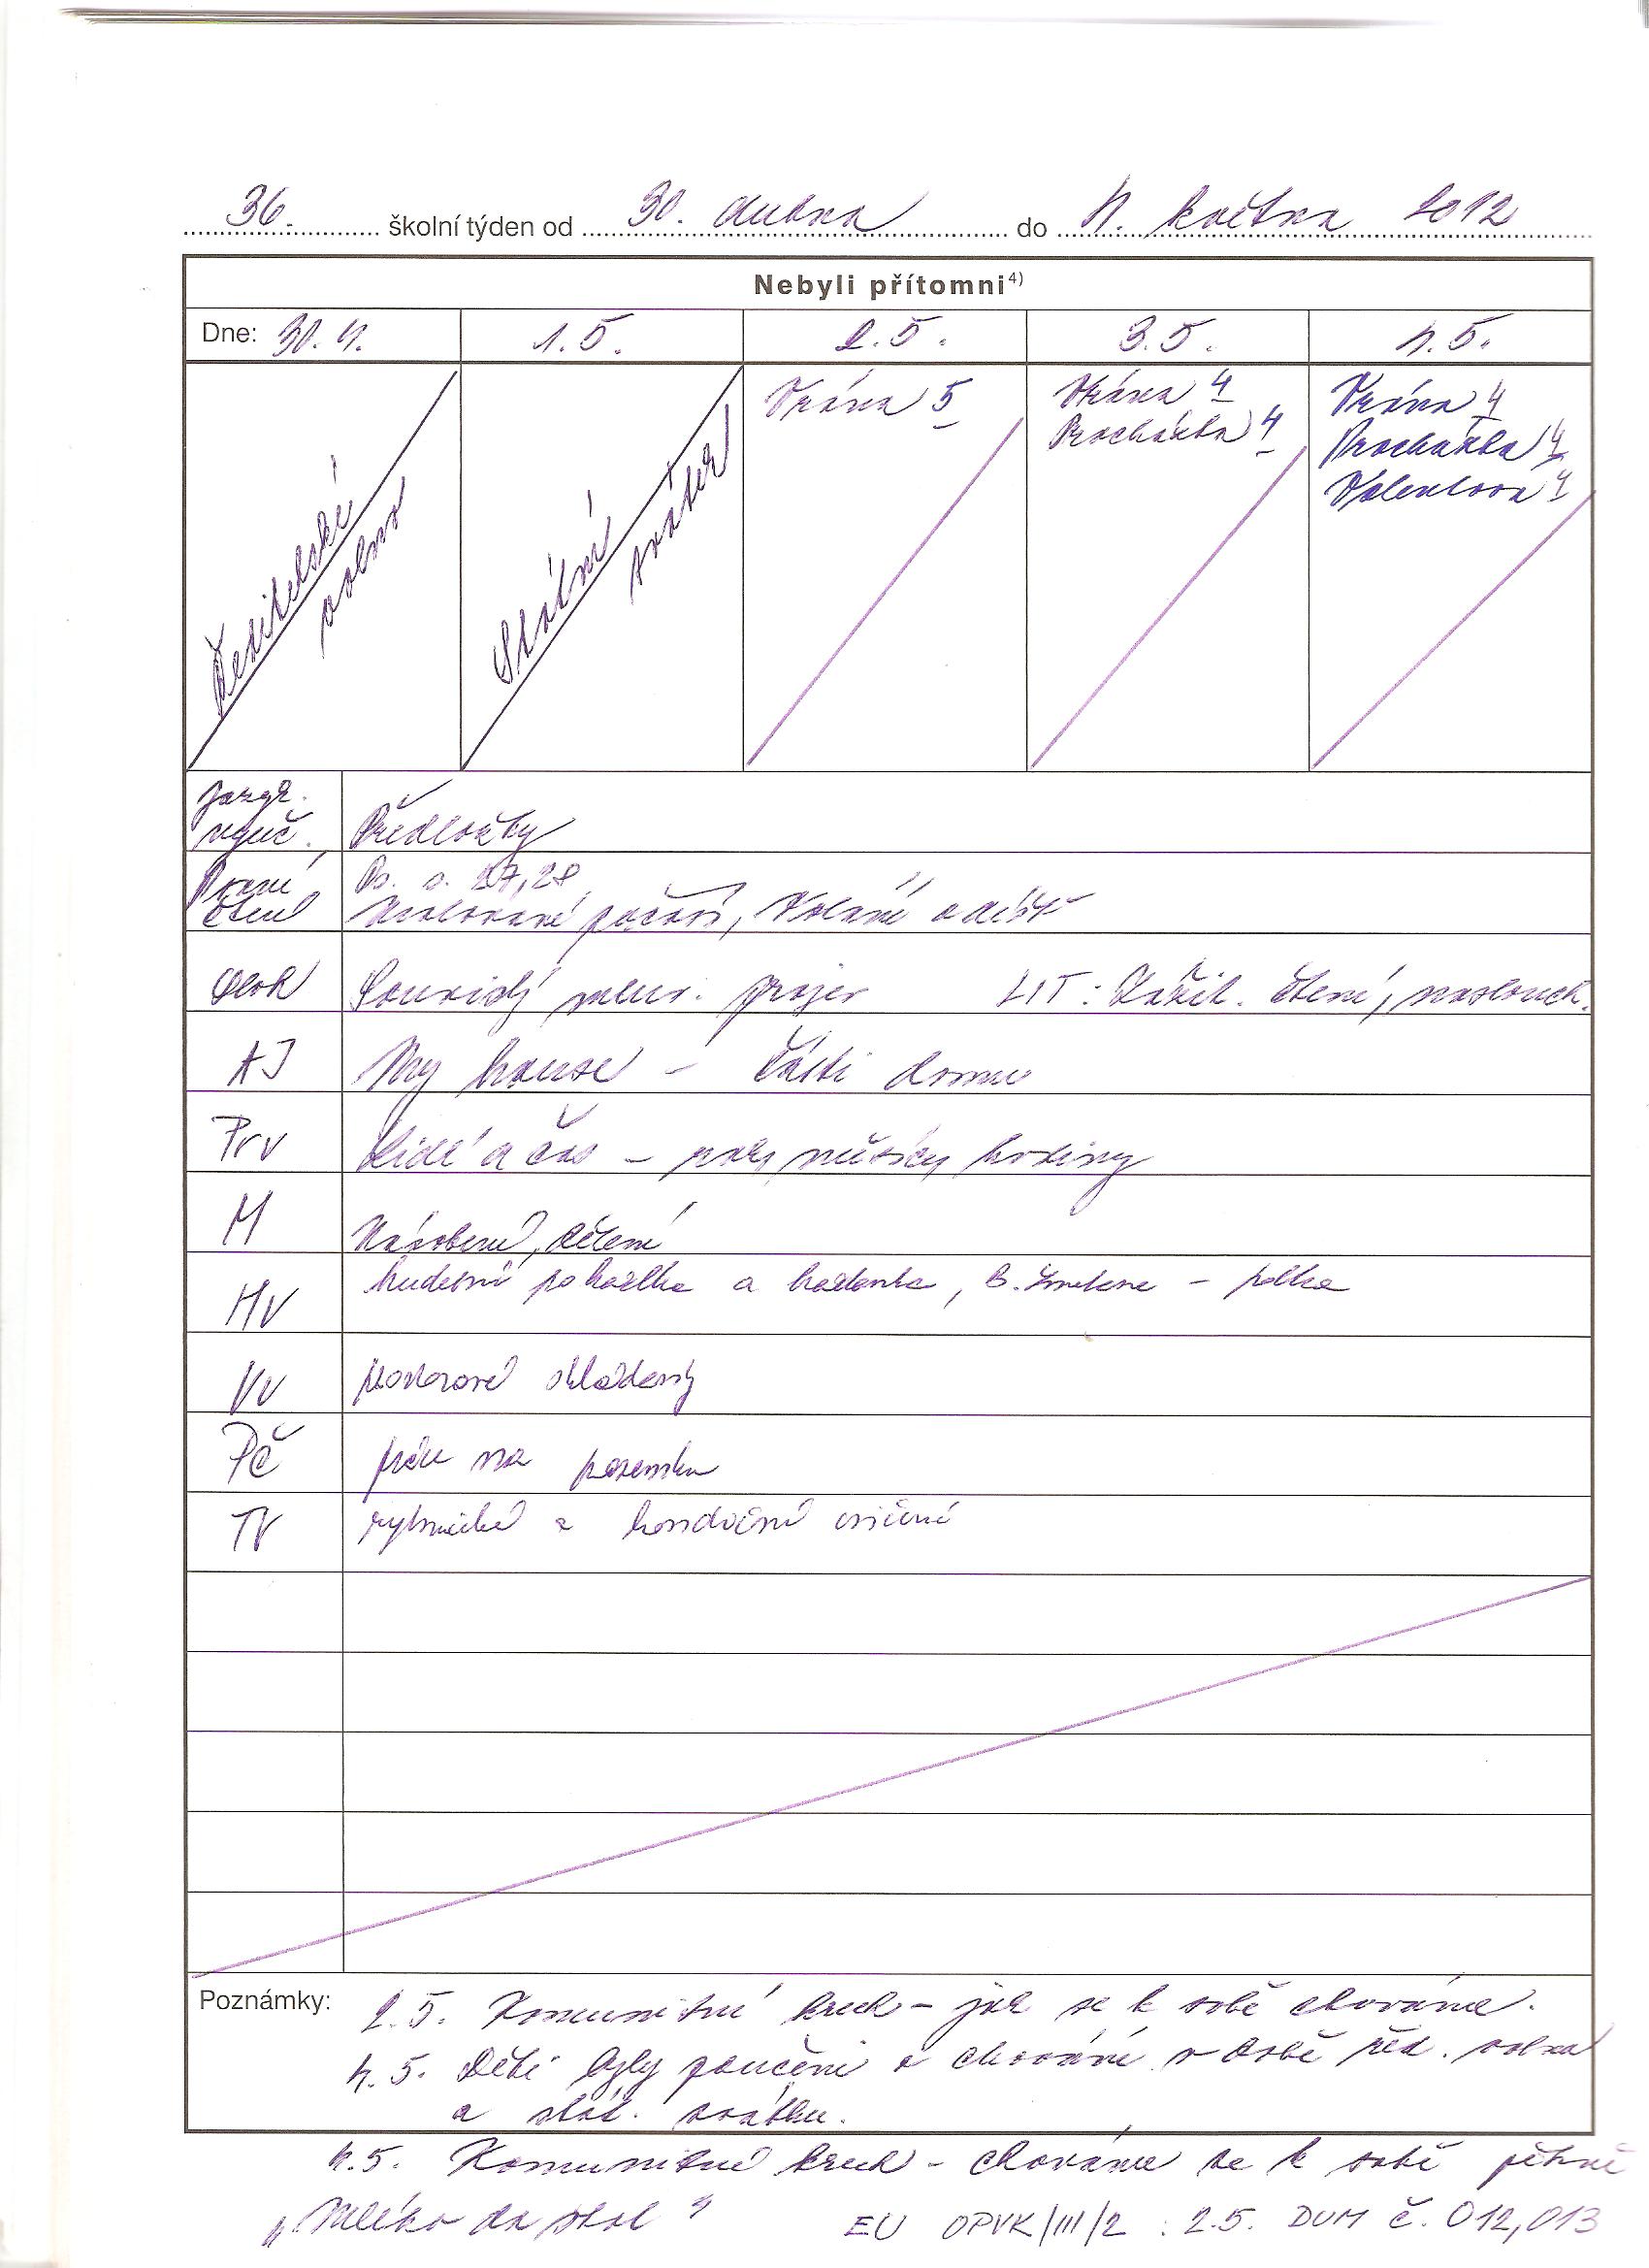 36. školní týden od 30. dubna do 4. května 2012
Nebyli přítomni4)
Dne: 30. 4. 1. 5. 2. 5. 3. 5. 4. 5.
Ředitelské volno
Státní svátek
Vrána 5
Vrána 4
Procházka 4
Vrána 4
Procházka 4
Valentova 4
Jazyk.
vyuč. Předložky
Psaní, Ps. s. 27, 28
čtení Malované počasí, Volání o déšť
Sloh Souvislý mluv. projev LIT: Zážit. čtení, naslouch.
AJ My house - části domu
Prv Lidé a čas - roky, měsíce, hodiny
M Násobení, dělení
Hv hudební pohádka a hádanka, B. Smetana - polka
Vv prostorové skládanky
Pč práce na pozemku
TV rytmická a kondiční cvičení
Poznámky: 2. 5. Komunitní kruh - jak se k sobě chováme.
4. 5. Děti byly poučeni o chování v době řed. volna
a stát. svátku.
4. 5. Komunitní kruh - chováme se k sobě pěkně
„Mléko do škol" EU OPVK/III/2 : 2.5. DUM č. 012, 013